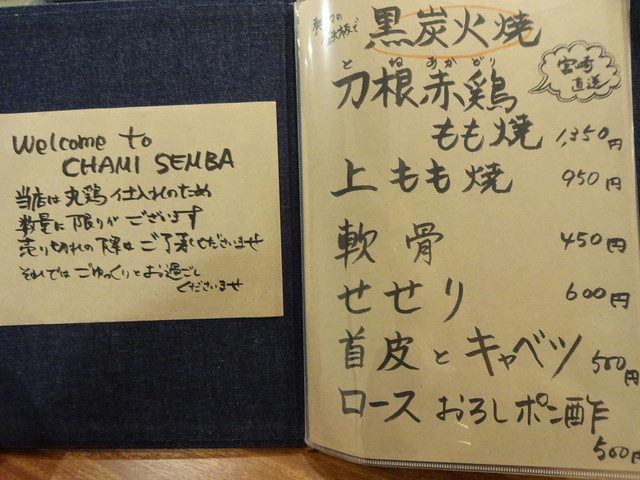 Welcome to
CHAMI SEMBA
当店は丸鶏仕入れのため
数量に限りがございます
売り切れの際はご了承くださいませ
それではごゆっくりとお過ごし
くださいませ
黒炭火焼
とねあかどり
刀根赤鶏
宮崎
直送
もも焼 1,350円
上もも焼 950円
軟骨 450円
せせり 600円
首皮とキャベツ 500円
ロースおろしポン酢
500円